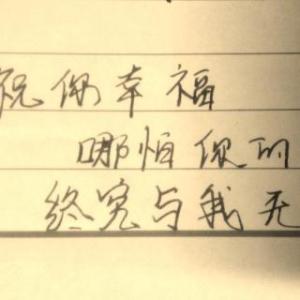 祝你幸福
哪怕你的
终究与我无